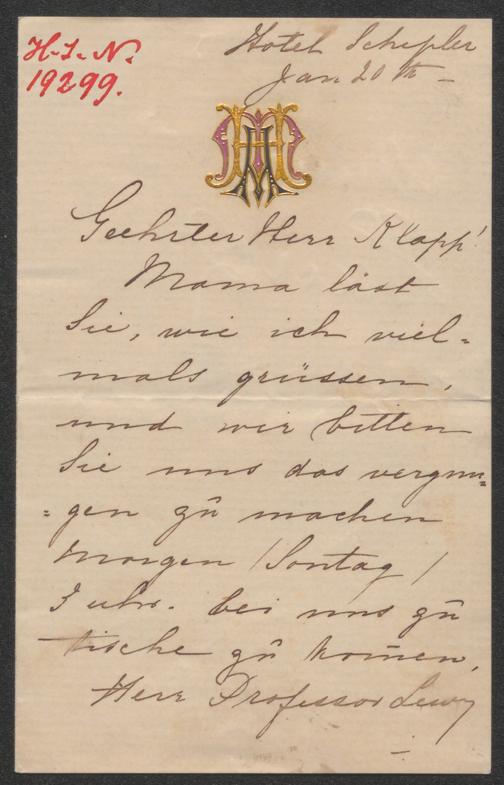 H.I.N.
19299.
Hotel Schipler
Jan 20th –
Geehrter Herr Klapp!
Mama läst
Sie, wie ich viel-
mals grüssen,
und wir bitten
Sie uns das vergnü=
=gen zū machen
morgen /Sontag/
3 uhr. bei uns zū
tische zū kom̄en,
Herr Professor Lewy